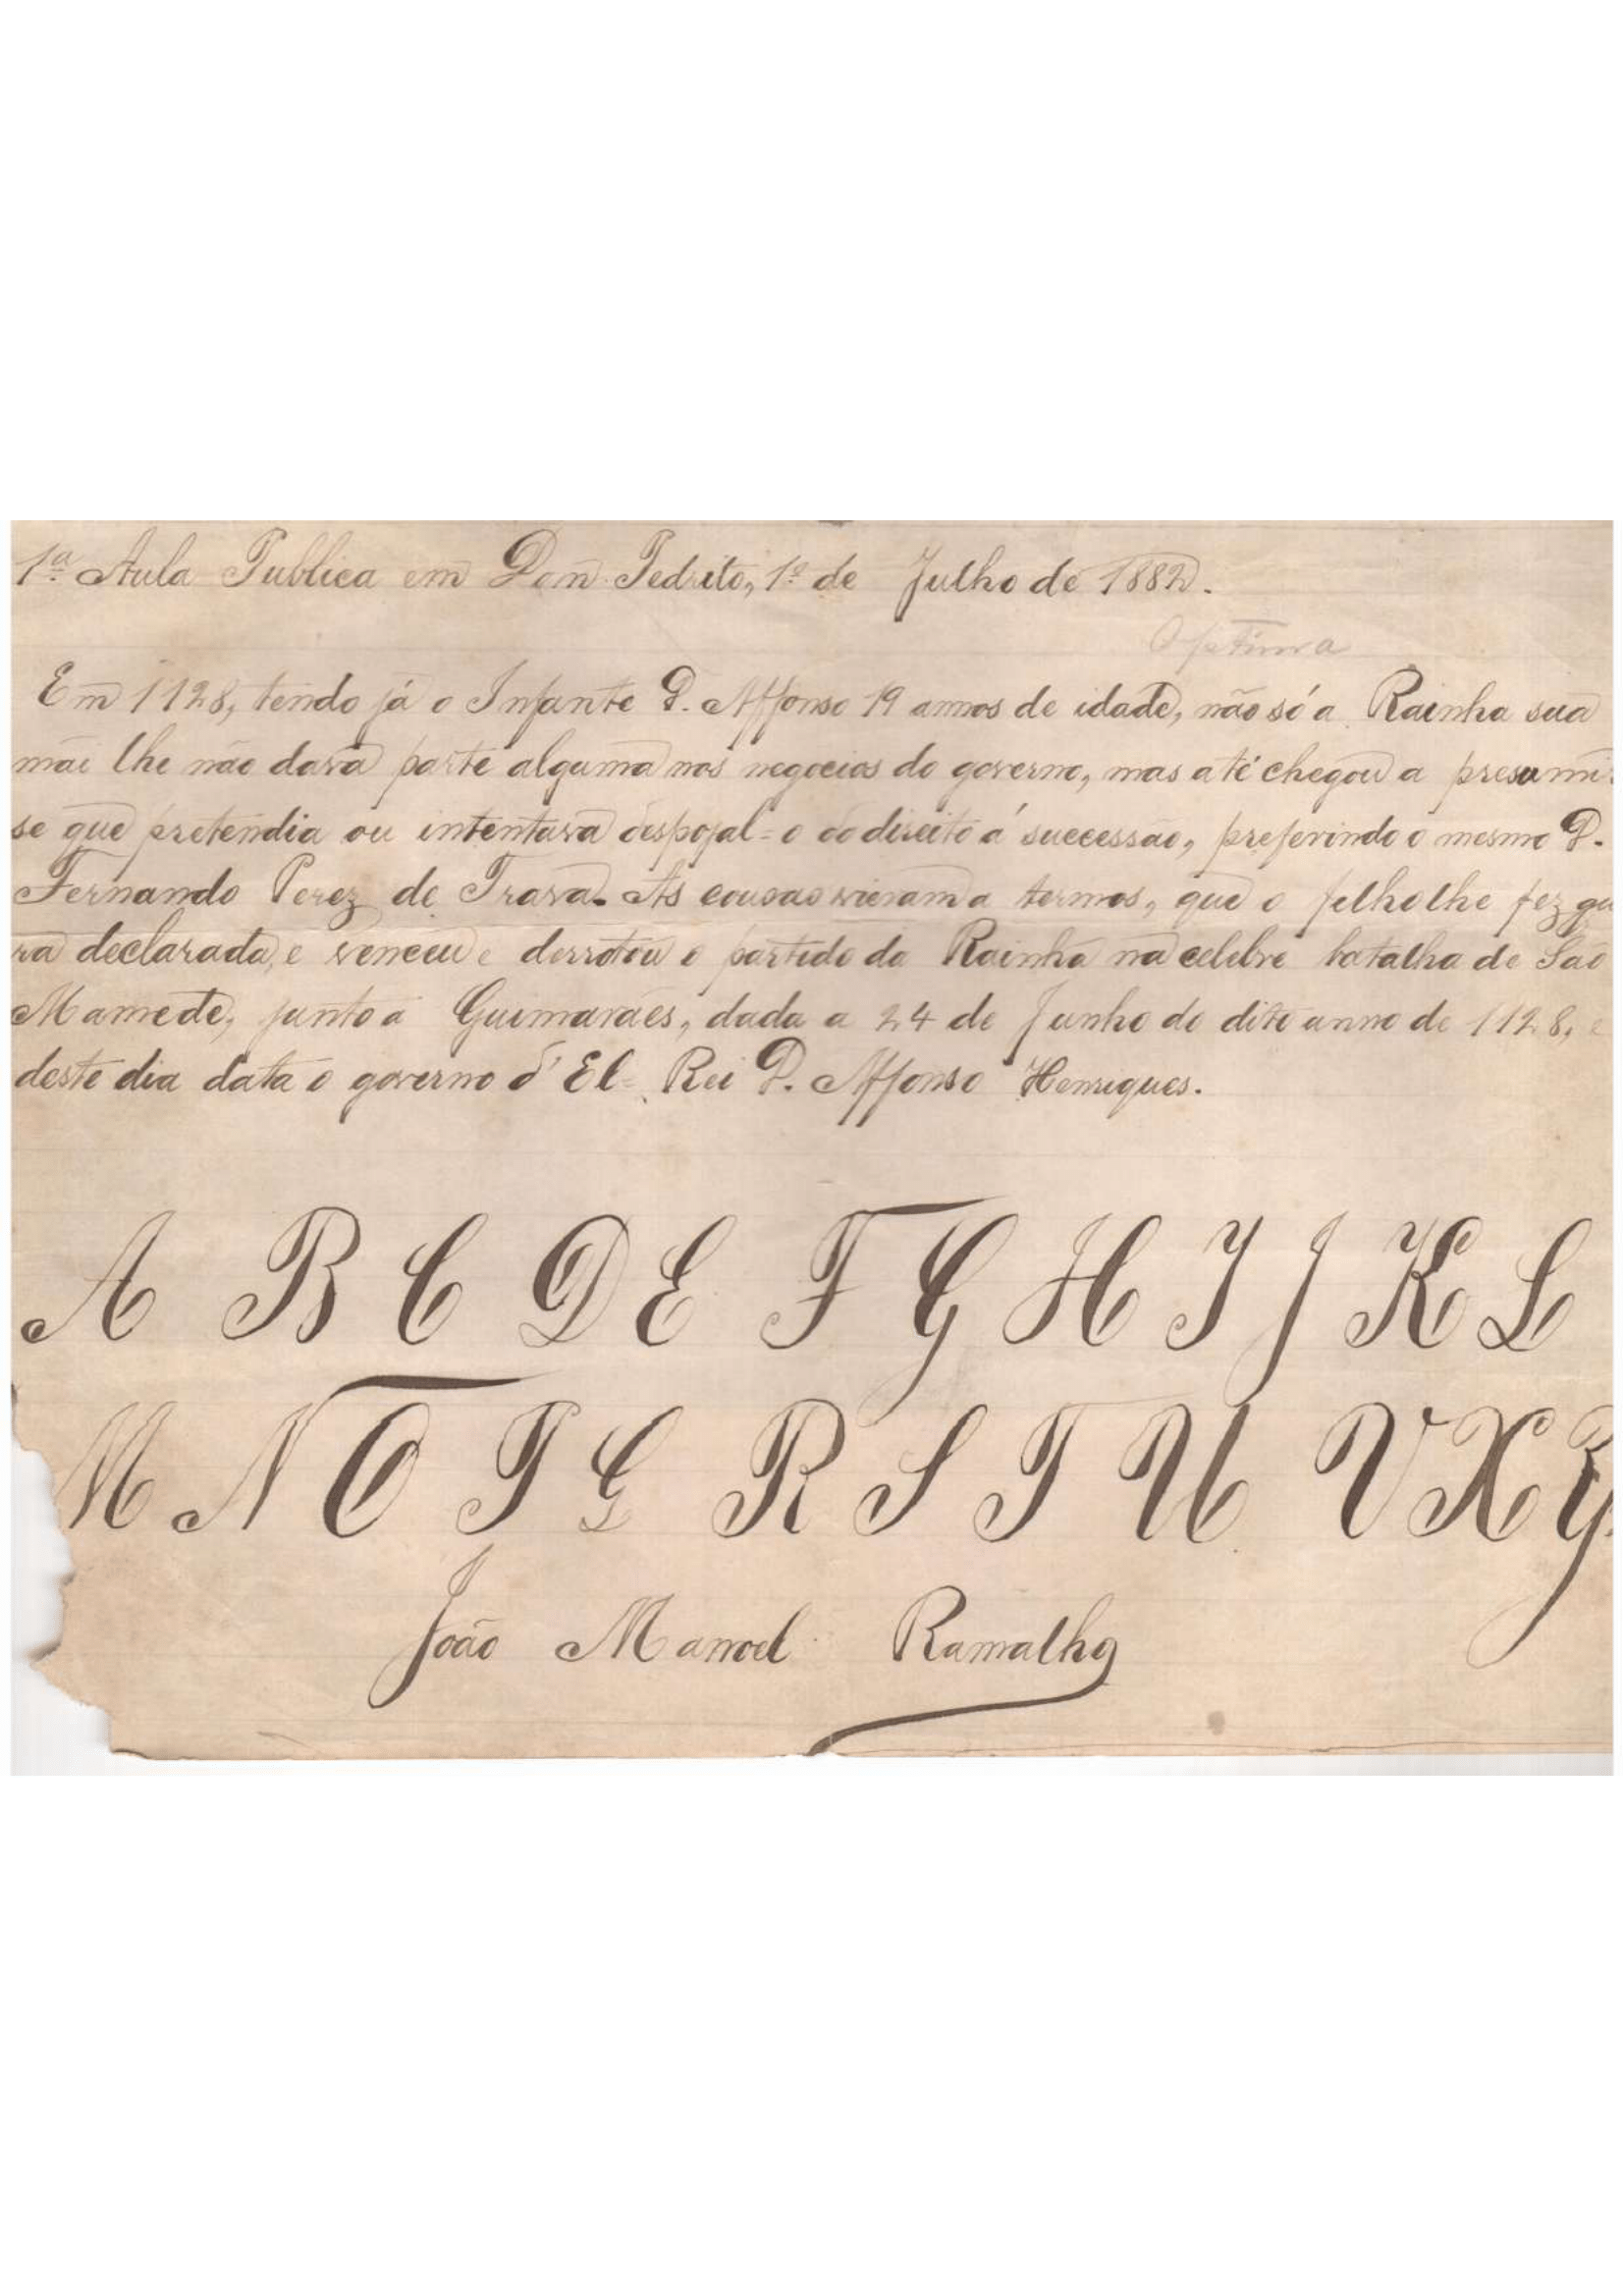 1ª Aula Publica em Don Pedrito, 1º de Julho de 1882.
Optima
Em 1128, tendo já o Infante D. Affonso 19 annos de idade, não só a Rainha sua
mãi lhe não dava parte alguma nos negocios do governo, mas até chegou a presumir
se que pretendia ou intentava despojal=o do direito á successão, preferindo o mesmo D.
Fernando Perez de Trava. As cousas vieram a termos, que o filho lhe fez gu
ra declarada, e venceu e derrotou o partido da Rainha na celebre batalha de São
Mamede, junto a Guimarães, dada a 24 de Junho do dito anno de 1128, e
deste dia data o governo d'El=Rei D. Affonso Henriques.
A B C D E F G H I J K L
M N O P Q R S T U V X Y
João Manoel Ramalho